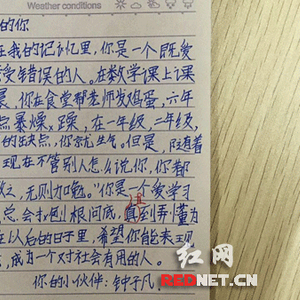 Weather conditions
的你
在我的记忆里,你是一个既爱
受错误的人。在数学课上课
晨,你在食堂帮老师发鸡蛋,六年
点暴燥,躁,在一年级,二年级,
的出发点,你就生气。但是,随着
现在不管别人怎么说你,你都
改之,无则加勉。"你是一个爱学习
总会打到根问底,直到弄懂为
在以后的日子里,希望你能来现
,成为一个对社会有用的人。
你的小伙伴:钟子凡
红网
REDNET.CN